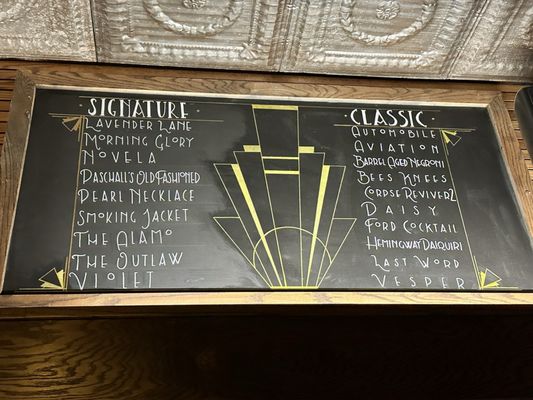 SIGNATURE
LAVENDER LANE
MORNING GLORY
NOVELA
PASCHALL'S OLD FASHIONED
PEARL NECKLACE
SMOKING JACKET
THE ALAMO
THE OUTLAW
VIOLET
CLASSIC
AUTOMOBILE
AVIATION
BARREL AGED NEGRONI
BEES KNEES
CORPSE REVIVER 2
DAISY
FORD COCKTAIL
HEMINGWAY DAIQUIRI
LAST WORD
VESPER